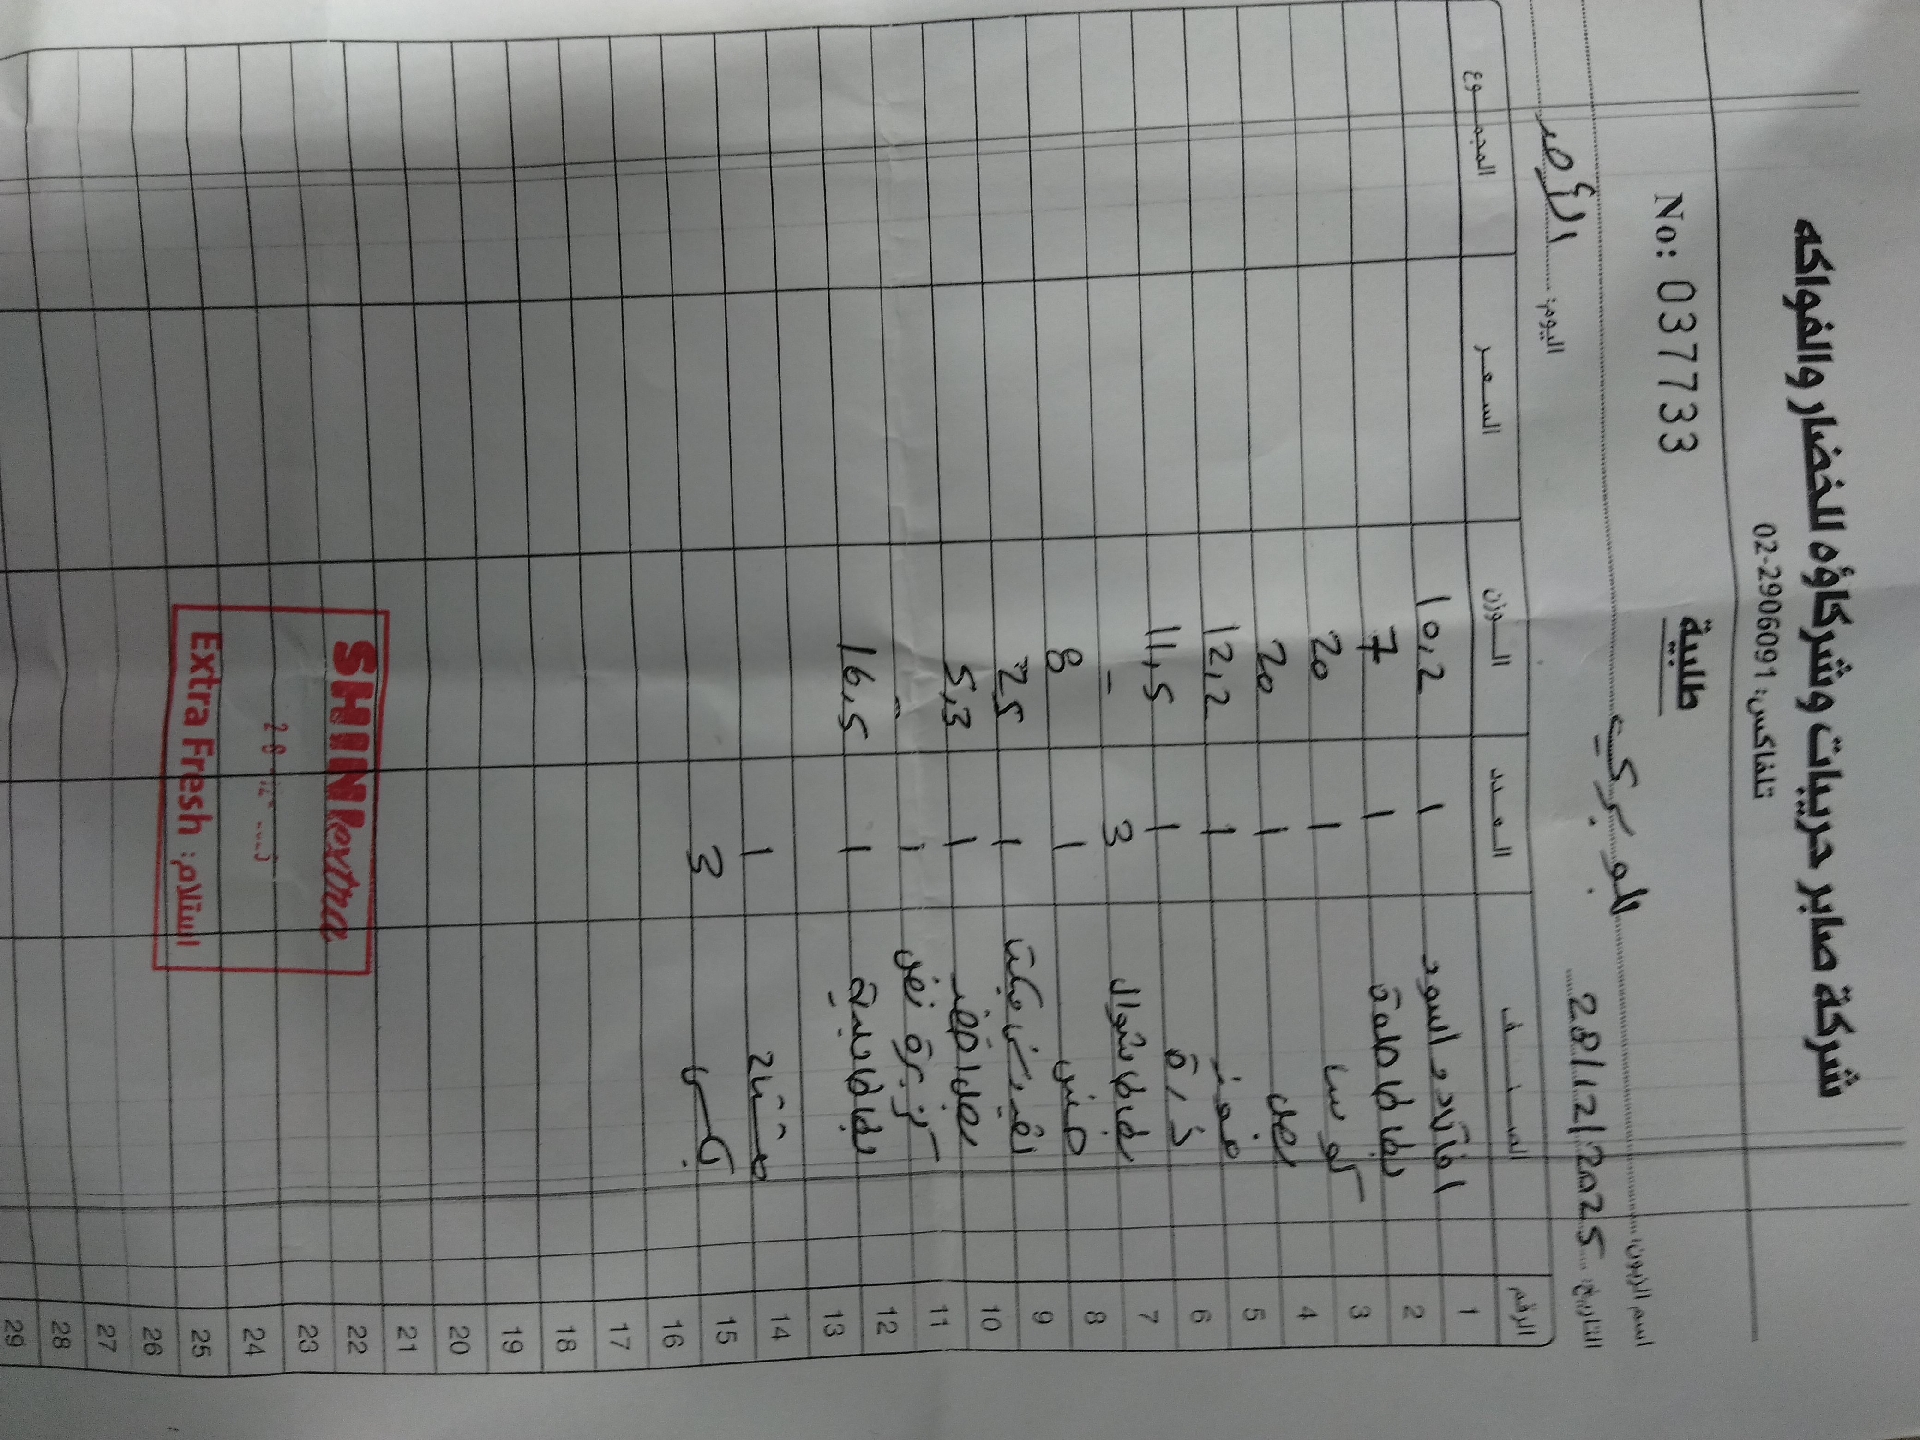 شركة صابر حريبات وشركاؤه للخضار والفواكه
تلفاكس: 02-2906091
طلبية
No: 037733
اسم الزبون:
التاريخ: 28/12/2025 اليوم: الأحد
الرقم الصنف العدد الوزن السعر المجموع
1 اسود 1 10,2
2 بطاطا حلوة 1 7
3 كوسا 1 20
4 بصل 1 20
5 1 12,2
6 ذرة 1 11,5
7 بطاطا شوال 3 -
8 خس 1 8
9 1 25
10 بصل اخضر 1 5,3
11 1 -
12 بطاطا 1 16,5
13
14 1
15 3
16
17
18
19
20
21
22
23
24
25
26
27
28
29
SHINI extra
استلام: Extra Fresh